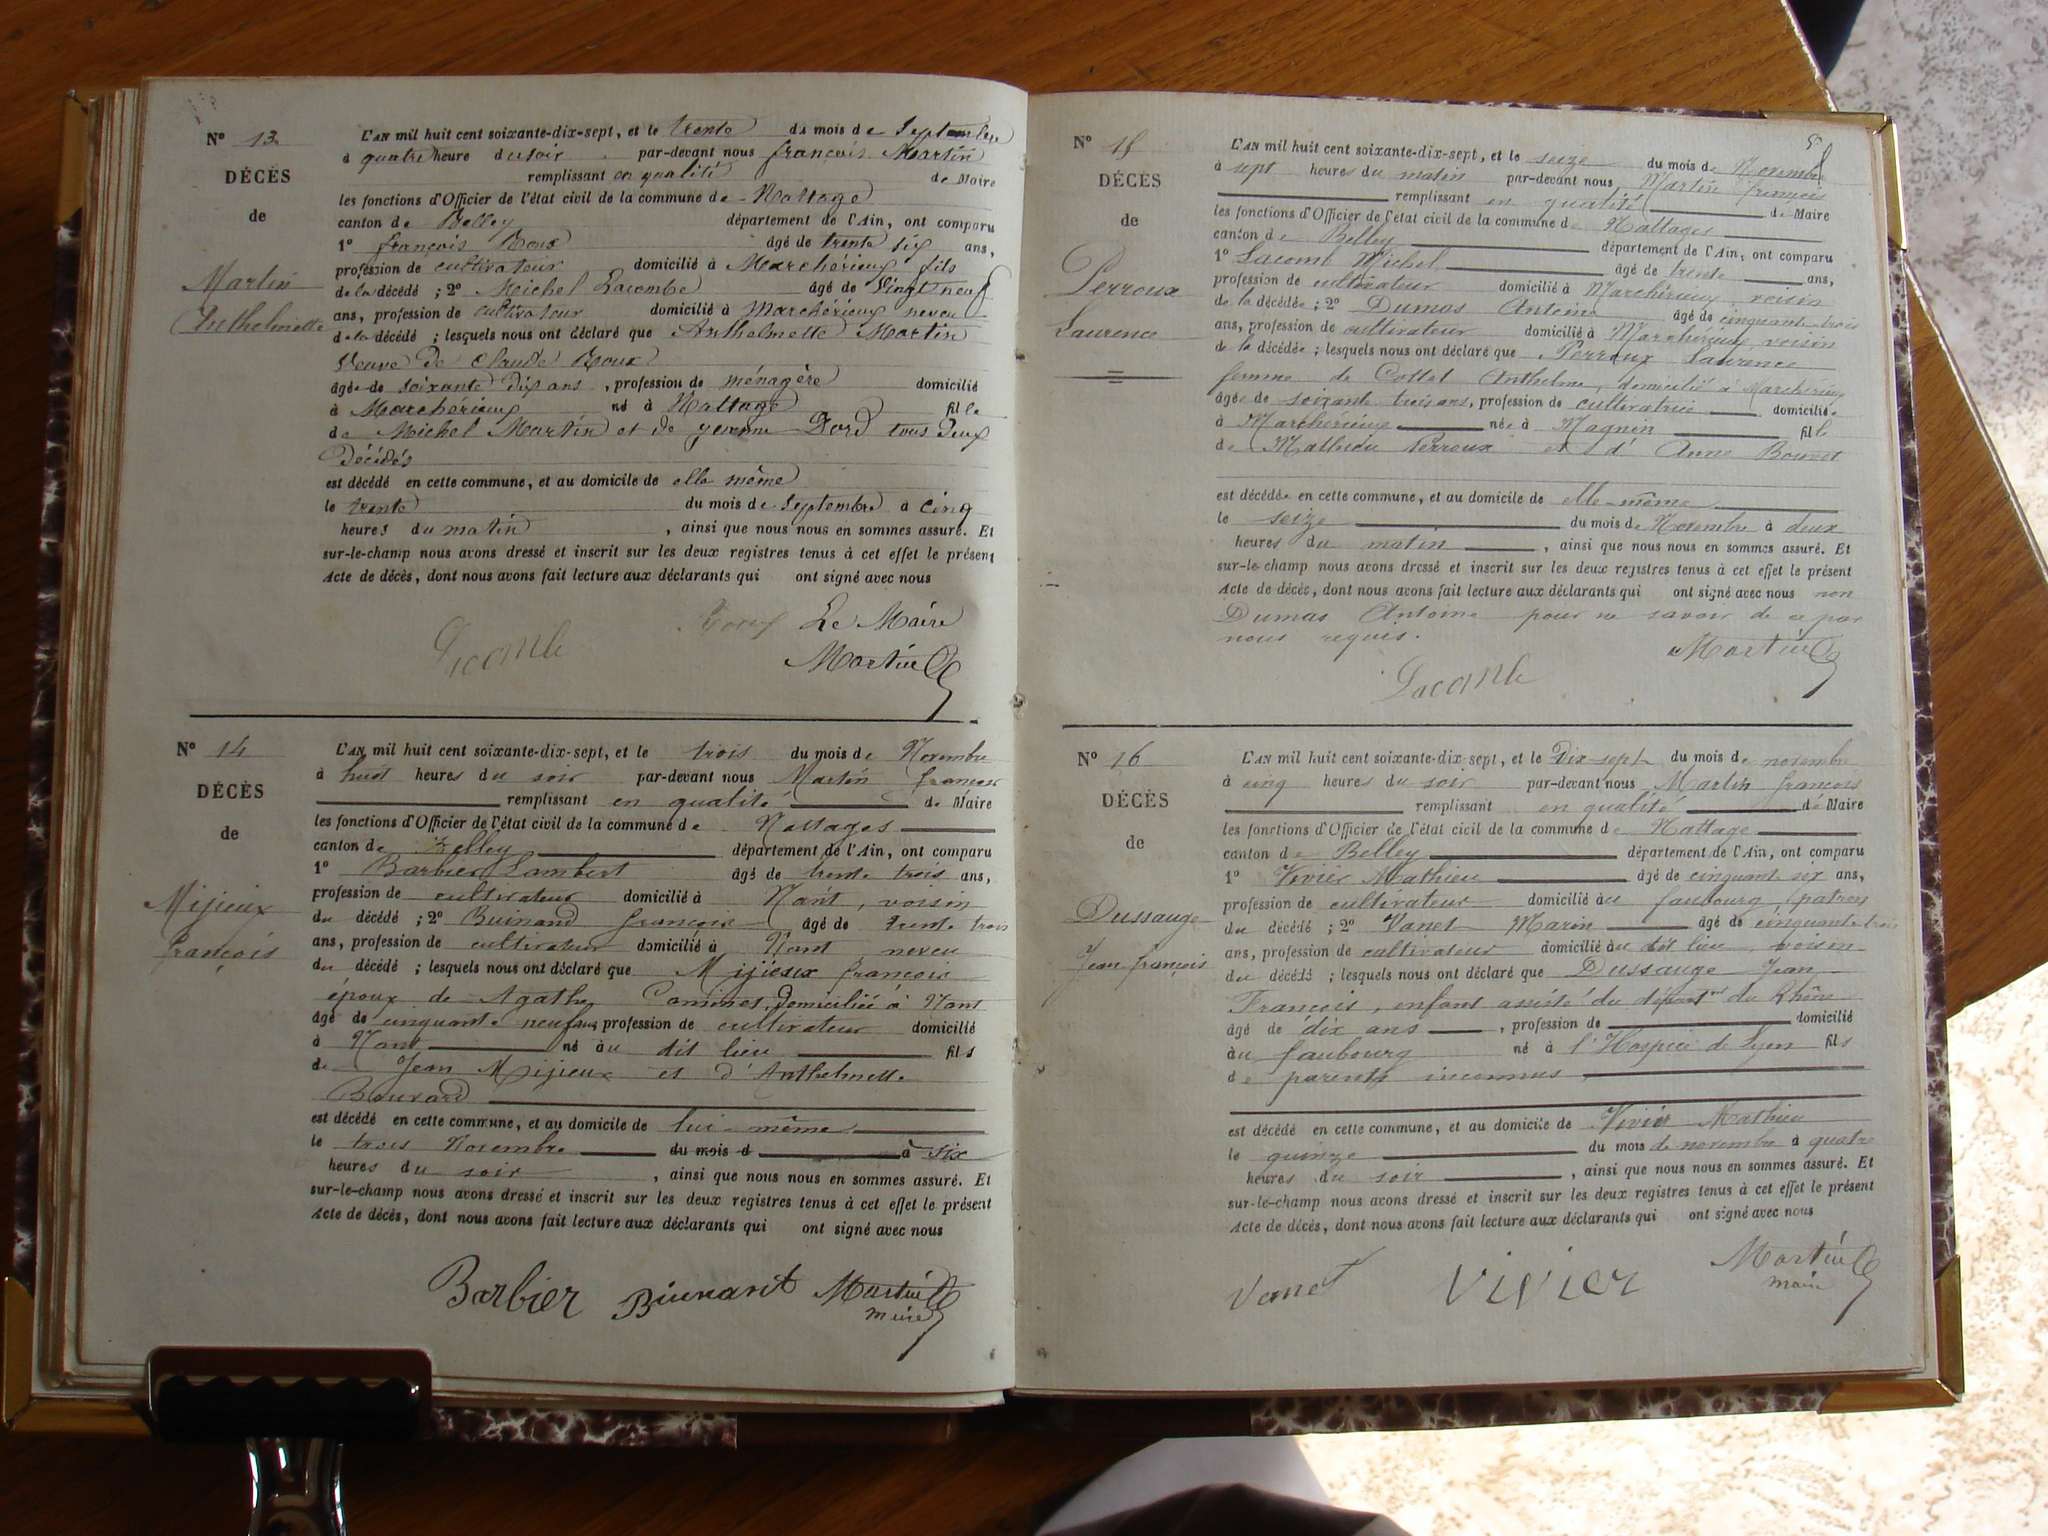 Nº 13
DÉCÈS
de
Martin
Anthelmette
L'AN mil huit cent soixante-dix-sept, et le trente du mois de Septembre
à quatre heure du soir par-devant nous françois Martin
remplissant en qualité de Maire
les fonctions d'Officier de l'état civil de la commune de Nattage
canton de Belley département de l'Ain, ont comparu
1º françois Roux âgé de trente six ans,
profession de cultivateur domicilié à Marchérieux fils
de la décédé ; 2º Michel Lacombe âgé de vingt neuf
ans, profession de cultivateur domicilié à Marchérieux neveu
de la décédé ; lesquels nous ont déclaré que Anthelmette Martin
Veuve de Claude Roux
âgée de soixante dix ans , profession de ménagère domicilié
à Marchérieux né à Nattage fille
de Michel Martin et de Dord tous deux
Décédés
est décédé en cette commune, et au domicile de elle même
le trente du mois de Septembre à cinq
heures du matin , ainsi que nous nous en sommes assuré. Et
sur-le-champ nous avons dressé et inscrit sur les deux registres tenus à cet effet le présent
Acte de décès, dont nous avons fait lecture aux déclarants qui ont signé avec nous
Lacomb Roux Le Maire
Martin
Nº 14
DÉCÈS
de
Mijieux
françois
L'AN mil huit cent soixante-dix-sept, et le trois du mois de Novembre
à huit heures du soir par-devant nous Martin françois
remplissant en qualité de Maire
les fonctions d'Officier de l'état civil de la commune de Nattages
canton de Belley département de l'Ain, ont comparu
1º Barbier Lambert âgé de trente trois ans,
profession de cultivateur domicilié à Nant, voisin
du décédé ; 2º Buinand françois âgé de trente trois
ans, profession de cultivateur domicilié à Nant neveu
du décédé ; lesquels nous ont déclaré que Mijieux françois
époux de Agathe domiciliée à Nant
âgé de cinquante neuf ans, profession de cultivateur domicilié
à Nant né au dit lieu fils
de Jean Mijieux et d'Anthelmette
Bouvard
est décédé en cette commune, et au domicile de lui-même
le trois Novembre du mois d à six
heures du soir , ainsi que nous nous en sommes assuré. Et
sur-le-champ nous avons dressé et inscrit sur les deux registres tenus à cet effet le présent
Acte de décès, dont nous avons fait lecture aux déclarants qui ont signé avec nous
Barbier Buinand Martin
maire
Nº 15
DÉCÈS
de
Perroux
Laurence
L'AN mil huit cent soixante-dix-sept, et le seize du mois de Novembre
à sept heures du matin par-devant nous Martin françois
remplissant en qualité de Maire
les fonctions d'Officier de l'état civil de la commune de Nattages
canton de Belley département de l'Ain, ont comparu
1º Lacomb Michel âgé de trente ans,
profession de cultivateur domicilié à Marchérieux, voisin
de la décédée ; 2º Dumas Antoine âgé de cinquante-trois
ans, profession de cultivateur domicilié à Marchérieux, voisin
de la décédée ; lesquels nous ont déclaré que Perroux Laurence
femme de Cottet Anthelme, domicilié à Marchérieux
âgée de soixante trois ans, profession de cultivatrice domiciliée
à Marchérieux née à Magnin fille
de Mathieu Perroux et d' Anne Bouvet
est décédée en cette commune, et au domicile de elle-même
le seize du mois de Novembre à deux
heures du matin , ainsi que nous nous en sommes assuré. Et
sur-le-champ nous avons dressé et inscrit sur les deux registres tenus à cet effet le présent
Acte de décès, dont nous avons fait lecture aux déclarants qui ont signé avec nous non
Dumas Antoine pour ne savoir de ce par
nous requis.
Martin
Lacomb
Nº 16
DÉCÈS
de
Dussauge
Jean françois
L'AN mil huit cent soixante-dix sept, et le Dix-sept du mois de novembre
à cinq heures du soir par-devant nous Martin françois
remplissant en qualité de Maire
les fonctions d'Officier de l'état civil de la commune de Nattage
canton de Belley département de l'Ain, ont comparu
1º Vivier Mathieu âgé de cinquante six ans,
profession de cultivateur domicilié au faubourg, patron
du décédé ; 2º Vanet Marin âgé de cinquante-trois
ans, profession de cultivateur domicilié au dit lieu, voisin
du décédé ; lesquels nous ont déclaré que Dussauge Jean
François, enfant assisté du départnt du Rhône
âgé de dix ans , profession de domicilié
au faubourg né à l'Hospice de Lyon fils
de parents inconnus
est décédé en cette commune, et au domicile de Vivier Mathieu
le quinze du mois de novembre à quatre
heures du soir , ainsi que nous nous en sommes assuré. Et
sur-le-champ nous avons dressé et inscrit sur les deux registres tenus à cet effet le présent
Acte de décès, dont nous avons fait lecture aux déclarants qui ont signé avec nous
Vanet Vivier Martin
maire